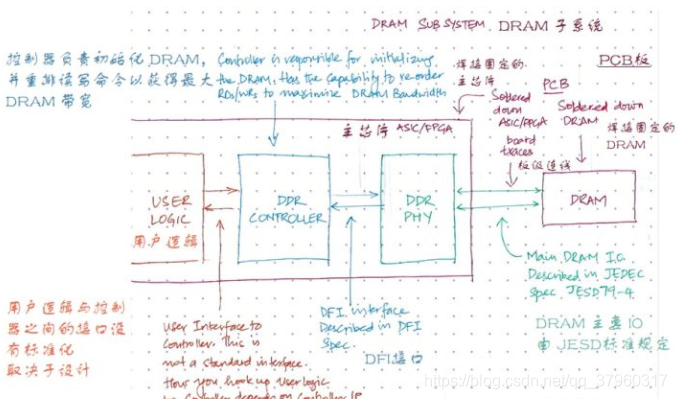 DRAM SUBSYSTEM DRAM 子系统
控制器负责初始化 DRAM,
并重排读写命令以获得最大
DRAM 带宽
Controller is responsible for initializing
the DRAM, Has the capability to reorder
RDs/WRs to maximize DRAM Bandwidth
焊接固定的
主芯片
Soldered
down
ASIC/FPGA
PCB板
PCB
Soldered down
DRAM
焊接固定的
DRAM
主芯片 ASIC/FPGA
board
traces
板级连线
USER
LOGIC
用户逻辑
DDR
CONTROLLER
DDR
PHY
DRAM
Main DRAM I.O.
Described in JEDEC
Spec JESD79-4
DRAM 主要IO
由 JESD标准规定
用户逻辑与控制
器之间的接口没
有标准化
取决于设计
User Interface to
Controller. This is
not a standard interface.
How you hook up User logic
to Controller depends on Controller IP
DFI interface
Described in DFI
Spec.
DFI接口
https://blog.csdn.net/qq_37960317